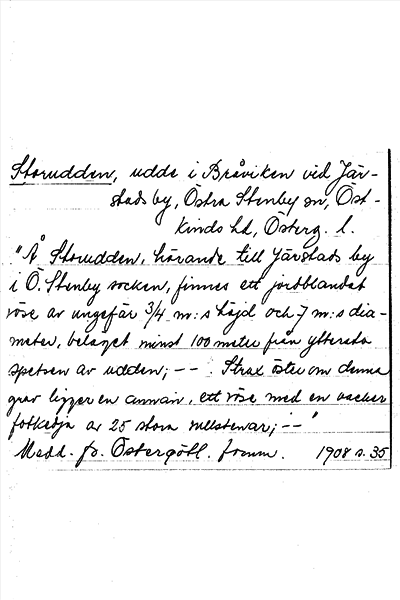 Storudden, udde i Bråviken vid Jär-
stads by, Östra Stenby sn, Öst-
kinds hd, Österg. l.
"Å Storudden, hörande till Järstads by
i Ö. Stenby socken, finnes ett jordblandat
röse av ungefär 3/4 m:s höjd och 7 m:s dia-
meter, beläget minst 100 meter från yttersta
spetsen av udden; -- Strax öster om denna
grav ligger en annan, ett röse med en vacker
fotkedja av 25 stora rullstenar; --"
Medd. fr. Östergötl. fornm. 1908 s. 35